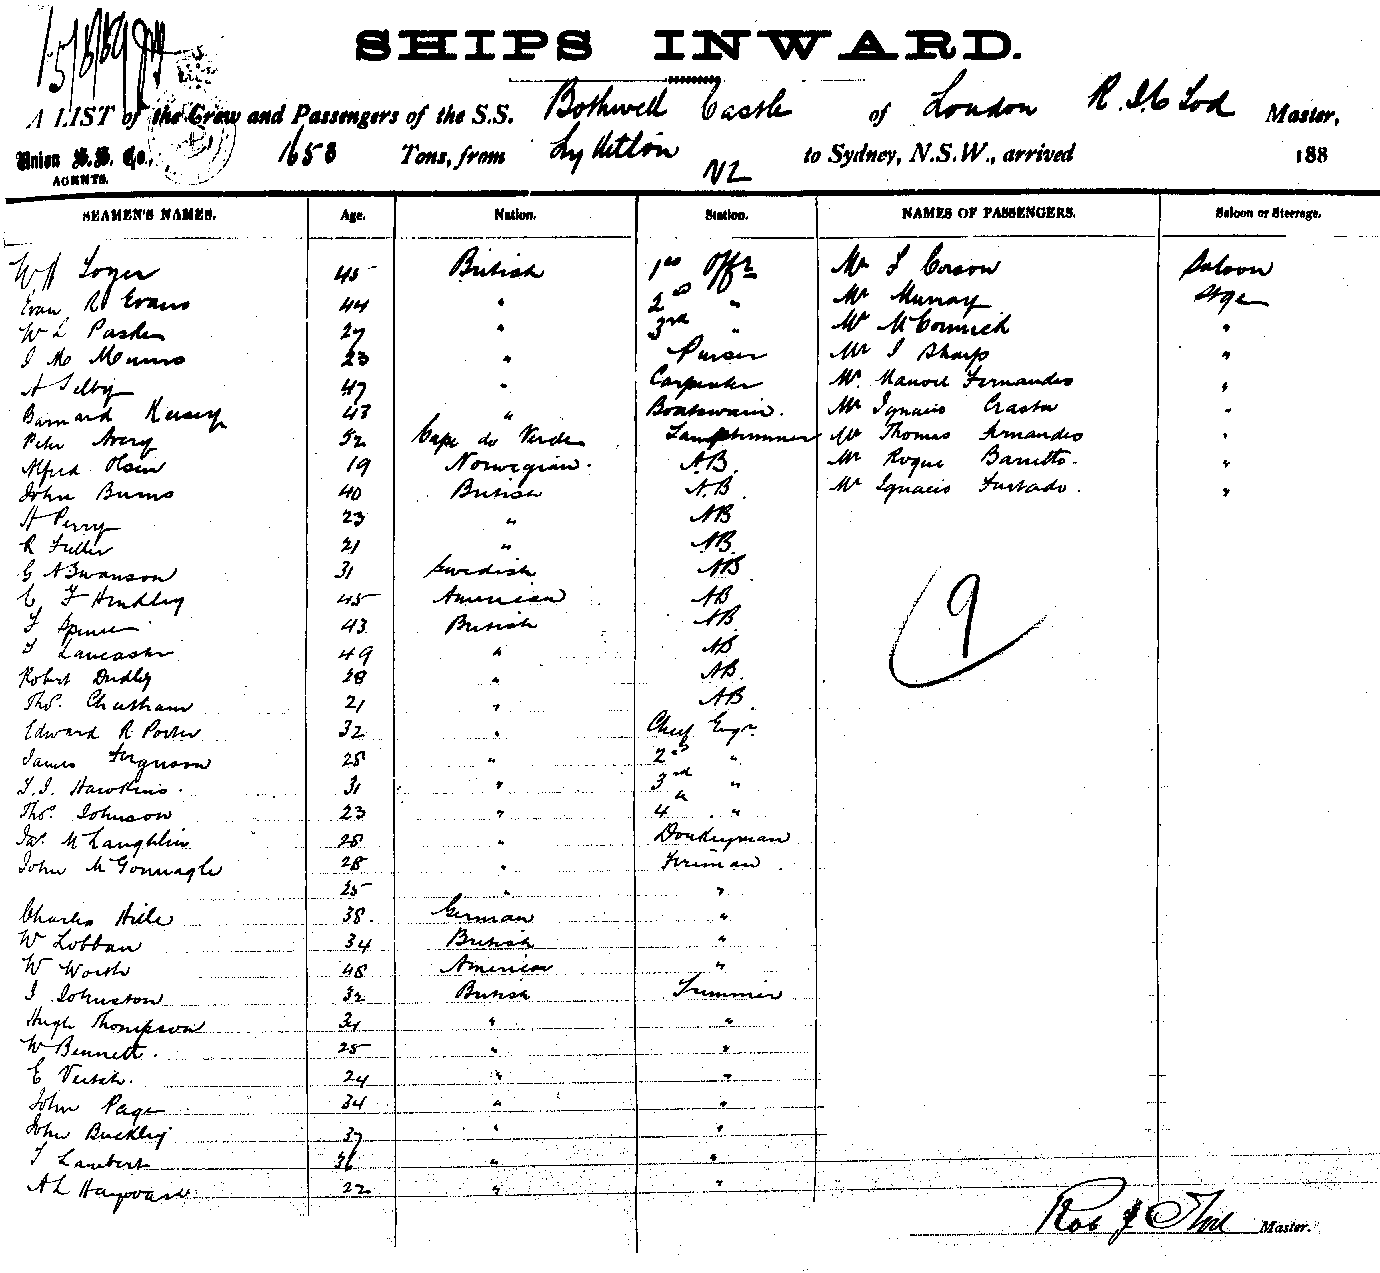 15/8/89
SHIPS INWARD.
A LIST of the Crew and Passengers of the S.S. Bothwell Castle of London Master,
Union S.S. Co., 1653 Tons, from Lyttelton NZ to Sydney, N.S.W., arrived 188
AGENTS.
SEAMEN'S NAMES. Age. Nation. Station. NAMES OF PASSENGERS. Saloon or Steerage.
45 British 1st Offr Mr Saloon
Evan R Evans 44 " 2nd " Mr Murray Stge
W L 27 " 3rd " Mr McCormick "
J Mc Munro 23 " Purser Mr J Sharp "
A Selby 47 " Carpenter Mr Manoel Fernandes "
Barnard Kersey 43 " Boatswain. Mr Ignacio Crasta "
Peter Avery 52 Cape de Verde Lamptrimmer Mr Thomas Fernandes "
Alfred Olsen 19 Norwegian. A.B. Mr Roque Barretto. "
John Burns 40 British A.B. Mr Ignacio Furtado. "
A Perry 23 " AB
R Fuller 21 " AB.
G A Swanson 31 Swedish AB
E F Hindley 45 American AB
F Spence 43 British AB
F Lancaster 49 " AB
Robert Dudley 28 " AB.
Thos. Cheetham 21 " AB. 9
Edward R Porter 32 " Chief Engr.
James Ferguson 28 " 2nd "
T.J. Hawkins. 31 " 3rd "
Thos. Johnson 23 " 4th "
Jas. McLaughlin 28 " Donkeyman
John McGonnagle 28 " Fireman
25 " "
Charles Hille 38. German "
W Lobban 34 British "
W Worth 48 American "
J Johnston 32 British Trimmer
Hugh Thompson 31 " "
W Bennett. 25 " "
E Veitch. 24 " "
John Page 34 " "
John Buckley 37 " "
T Lambert 36 " "
A L Hayward 22 " "
Master.